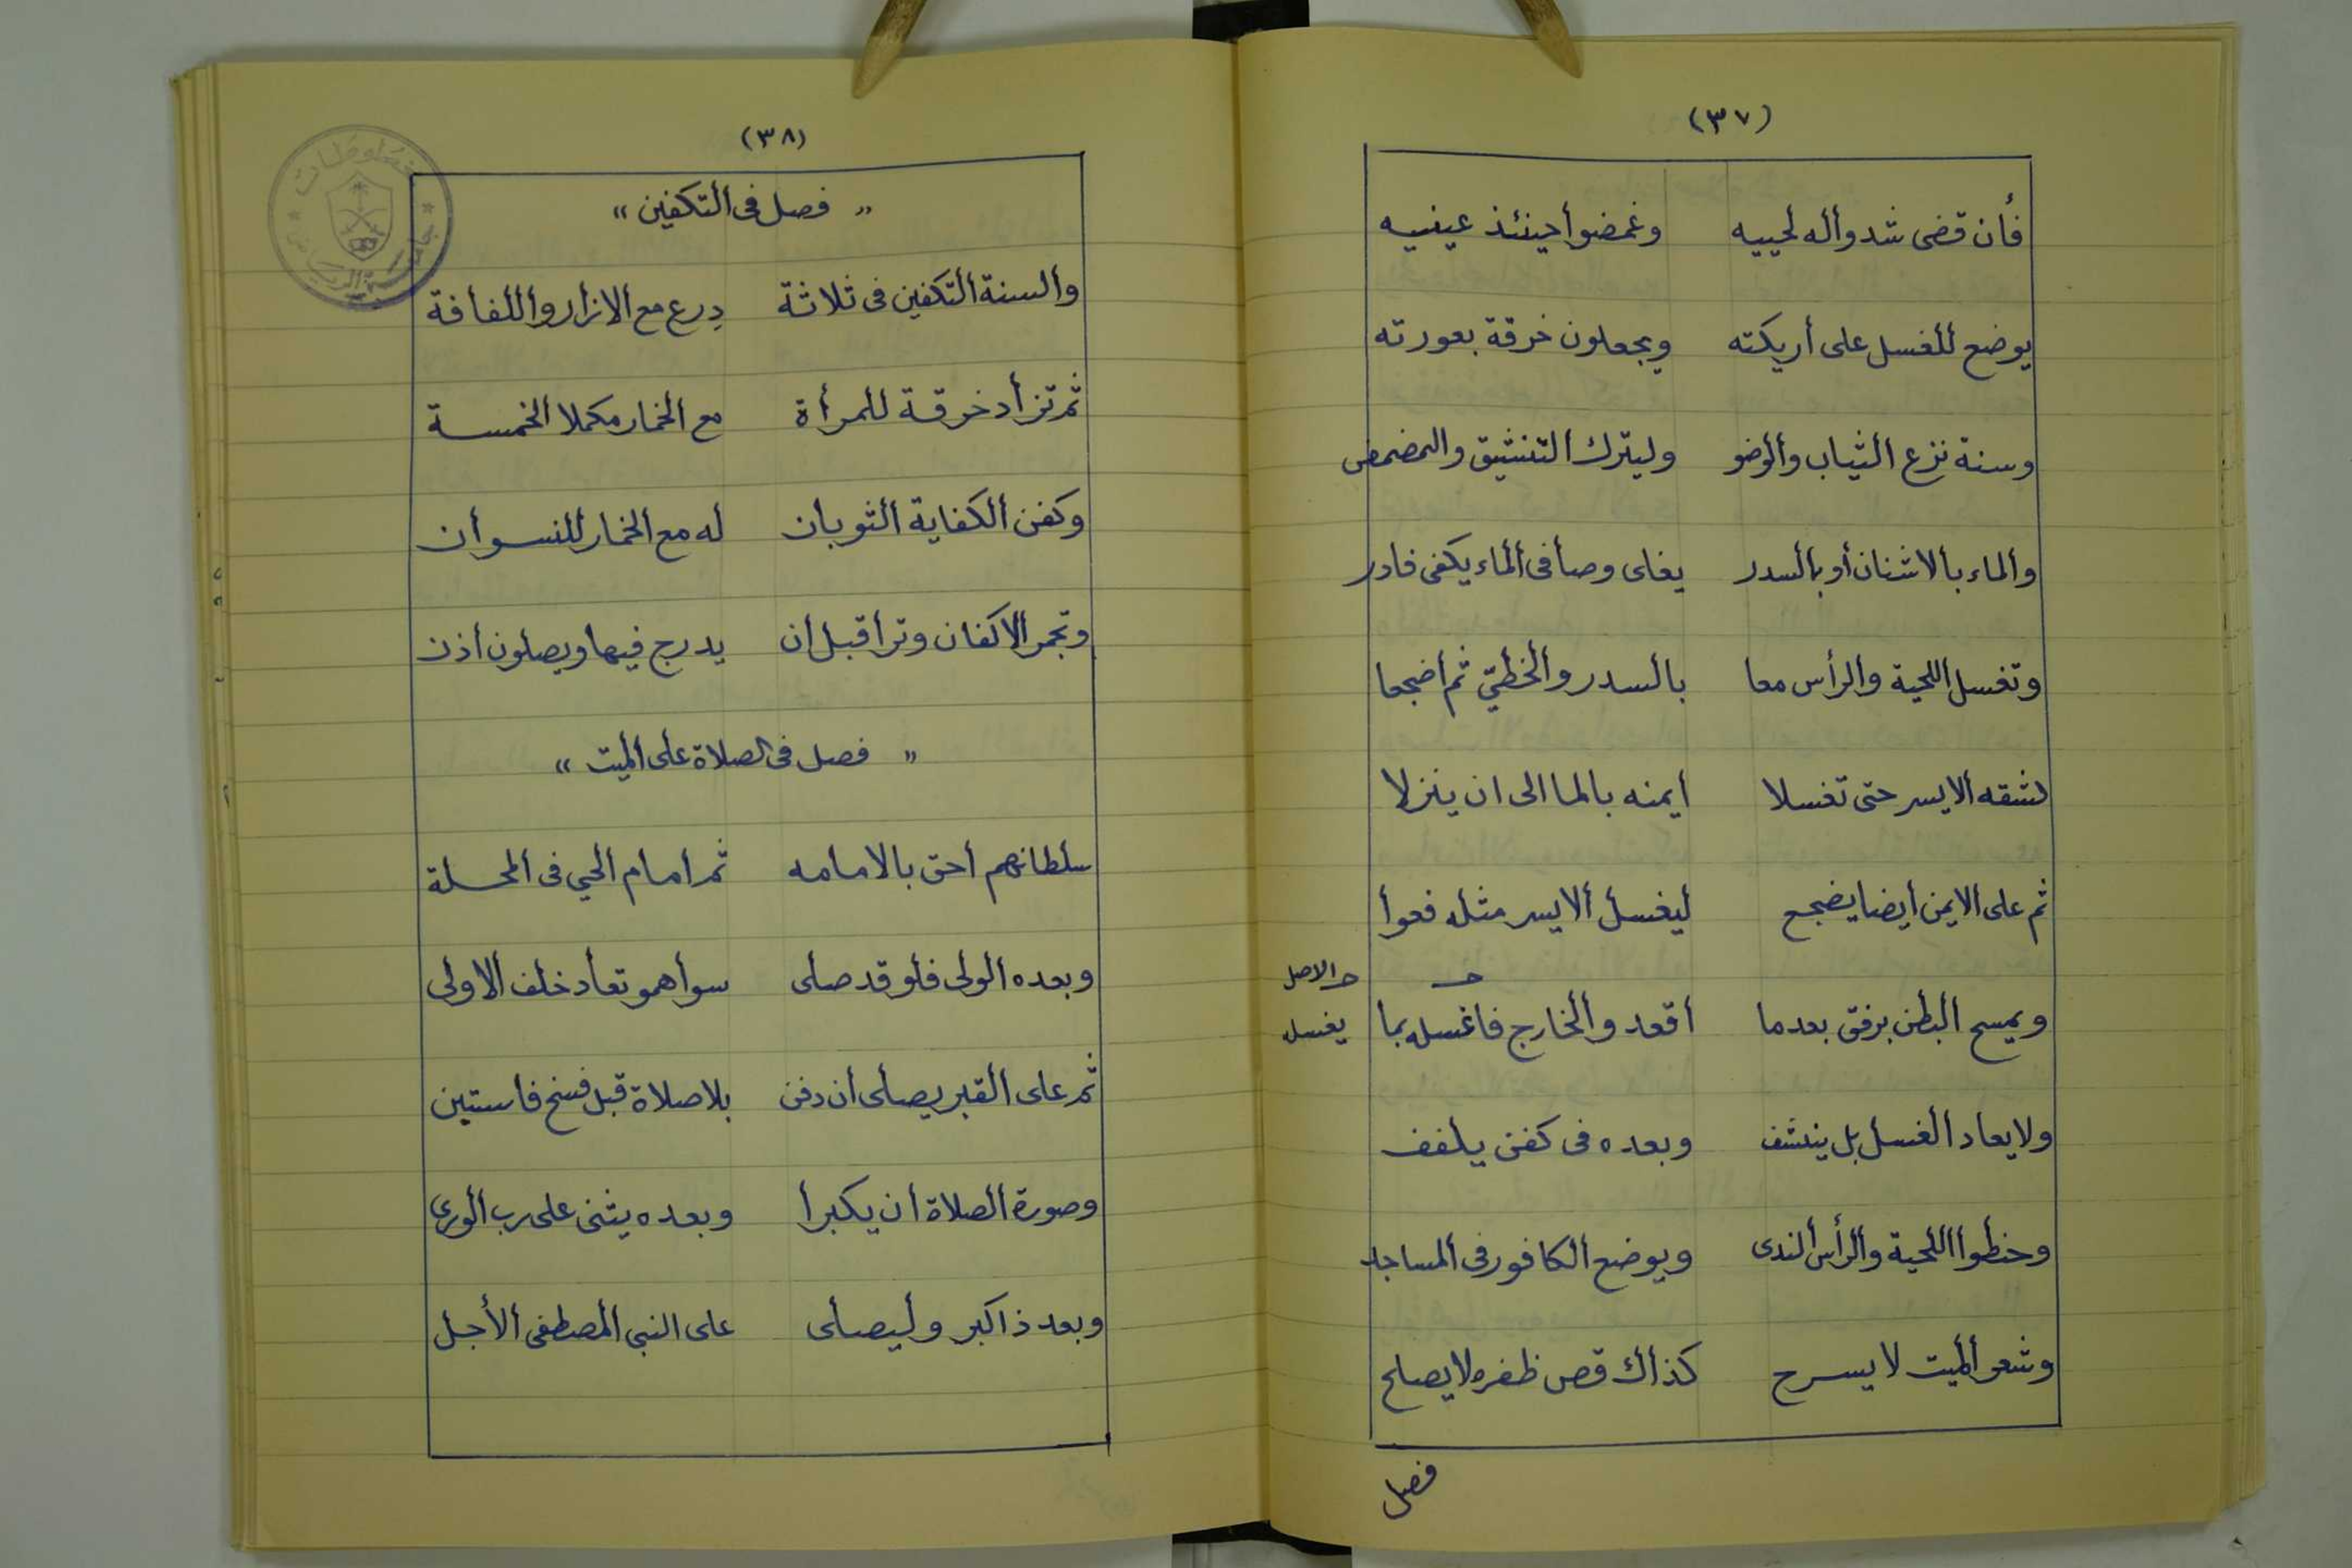 (٣٧)
فأن قضى شدوأله لحييه وغمضوأحينئذ عينيه
يوضع للغسل على أريكته ويجعلون خرقة بعورته
وسنة نزع ألثياب وألوضو وليترك ألتنشيق والمضمض
وألماء بألاشنان أو بألسدر يغلى وصأفى ألماء يكفى فادر
وتغسل أللحية وألرأس معا بألسدر وألخطيّ ثم أضجعا
لشقه ألايسر حتى تغسلا ايمنه بالما الى ان ينزلا
ثم على ألايمن أيضا يضجع ليغسل ألايسر مثله فعوأ
والاصل
ويمسح ألبطن برفق بعدما أقعد وألخارج فاغسله بما يغسل
ولايعاد ألغسل بل ينشف وبعده فى كفن يلفف
وحنطوأ أللحية وألرأس ألندى ويوضع ألكافور فى ألمساجد
وشعر ألميت لا يسرح كذأك قص ظفره لا يصلح
فصل
(٣٨)
" فصل فى ألتكفين "
وألسنة ألتكفين فى ثلاثة درع مع ألازار وأللفافة
ثم تزأد خرقة للمرأة مع ألخمار مكملا ألخمسة
وكفن ألكفاية ألثوبان له مع ألخمار للنسوأن
وتجمر ألاكفان وترأ قبل أن يدرج فيها ويصلون أذن
" فصل فى لصلاة على ألميت "
سلطانهم أحق بالامامه ثم أمام ألحي فى ألمحلة
وبعده ألولى فلو قد صلى سوأهمو تعأد خلف ألاولى
ثم على ألقبر يصلى أن دفن بلا صلاة قبل فسخ فاستبن
وصورة ألصلاة أن يكبرأ وبعده يثنى على رب ألورى
وبعد ذاكبر وليصلى على النبى ألمصطفى ألأجل
مخطوطات
جامعة الرياض